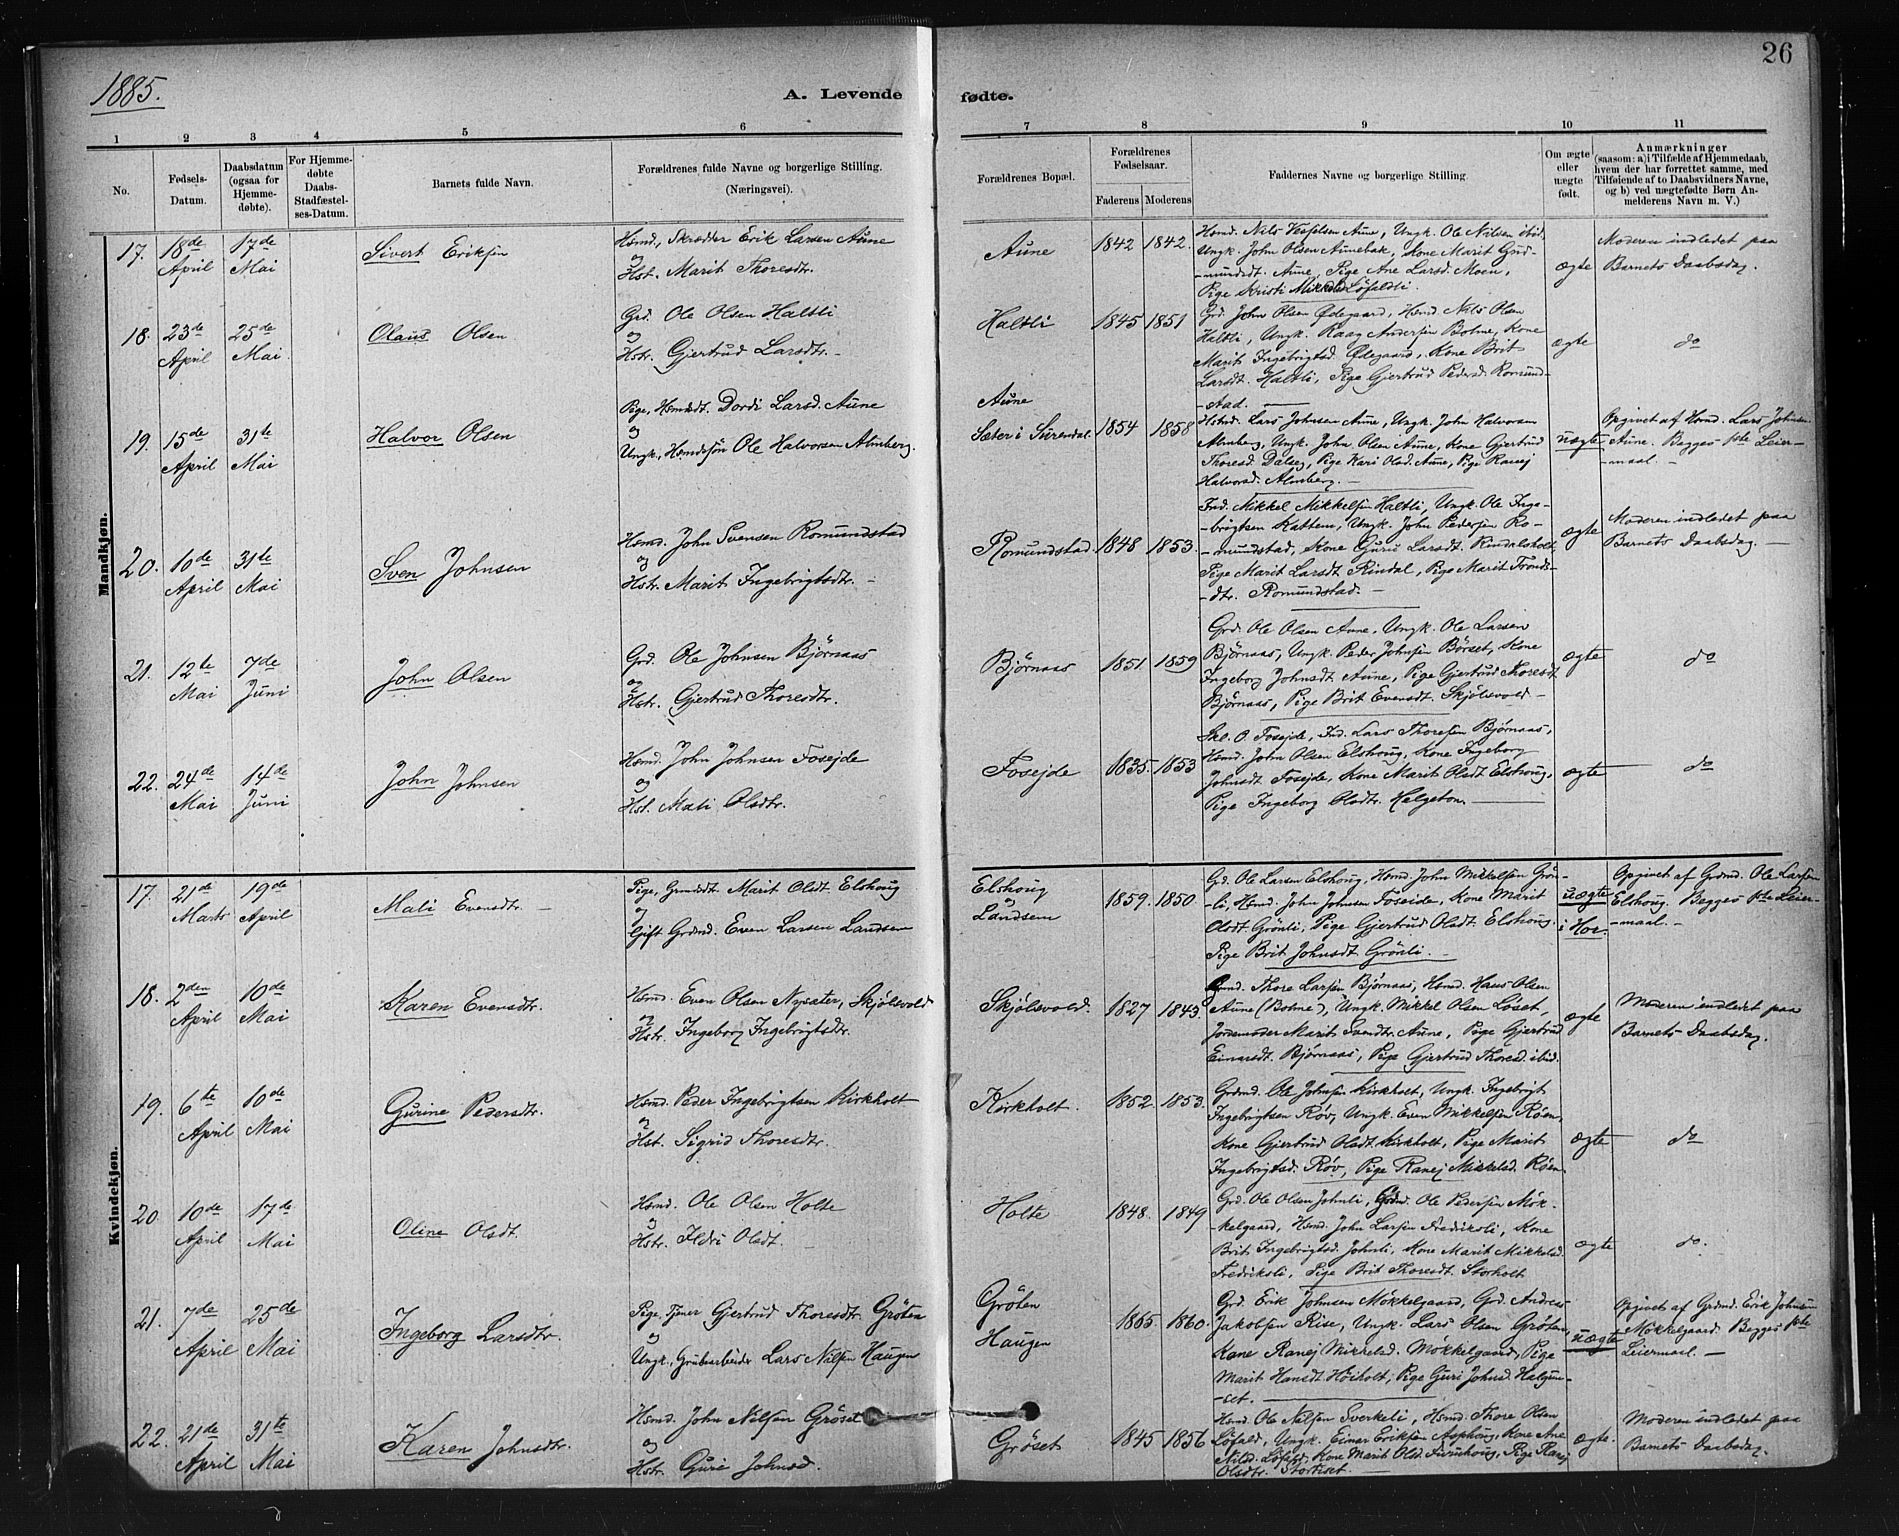 1885.
A. Levende fødte.
26
1 2 3 4 5 6 7 8 9 10 11
No.
Fødsels-
Datum.
Daabsdatum
(ogsaa for
Hjemme-
døbte).
For Hjemme-
døbte
Daabs-
Stadfæstel-
ses-Datum.
Barnets fulde Navn.
Forældrenes fulde Navne og borgerlige Stilling.
(Næringsvei).
Forældrenes Bopæl.
Forældrenes
Fødselsaar.
Faderens Moderens
Faddernes Navne og borgerlige Stilling.
Om ægte
eller
uægte
født.
Anmærkninger
(saasom: a) i Tilfælde af Hjemmedaab,
hvem der har forrettet samme, med
Tilføiende af to Daabsvidners Navne,
og b) ved uægtefødte Børn An-
melderens Navn m. V.)
Mandkjøn.
17. 18de April
17de Mai
Sivert Eriksen
Hsmd., Skrædder Erik Larsen Aune
og
Hst. Marit Thoresdtr.
Aune
1842 1842.
Ungk. John Olsen Aunebak, Kone Marit Gud-
-mundsdt. Aune, Pige Ane Larsd. Moen,
Pige Kristi Mikkelsd Løfaldli.
ægte
Moderen indledet paa
Barnets Daabsdag.
18. 23de April
25de Mai
Olaus Olsen
Grd. Ole Olsen Haltli
og
Hstr. Gjertrud Larsdtr. -
Haltli
1845 1851
Grd. John Olsen Ødegaard, Hsmd. Nils Olsen
Haltli, Ungk. Raag Andersen Bolme, Kone
Marit Ingebrigtsd. Ødegaard, Kone Brit
Larsdt. Haltli, Pige Gjertrud Pedersd. Romund-
-stad.
ægte
do
19. 15de April
31te Mai
Halvor Olsen
Pige, Hsmdsdt. Dordi Larsd. Aune
og
Ungk., Hsmdssøn Ole Halvorsen Almberg.
Aune
Sæter i Surendal.
1854 1858
Lars Johnsen Aune, Ungk. John Halvorsen
Almberg, Ungk. John Olsen Aune, Kone Gjertrud
Thoresd. Dalseg, Pige Kari Olsd. Aune, Pige Ranej
Halvorsd. Almberg. -
uægte
Opgivet af Hsmd. Lars Johnsen
Aune. Begges 1ste Leier-
-maal. -
20. 10de April
31te Mai
Sven Johnsen
Hsmd. John Svensen Romundstad
og
Hstr. Marit Ingebrigtsdtr. -
Romundstad.
1848 1853.
Ind. Mikkel Mikkelsen Haltli, Ungk. Ole Inge-
-brigtsen Kattem, Ungk. John Pedersen Ro-
-mundstad, Kone Guru Larsdt. Rindalsholt,
Pige Marit Larsdt Rindal, Pige Marit Tronds-
-dtr. Romundstad. -
ægte
Moderen indledet paa
Barnets Daabsdag. -
21. 12te Mai
7de Juni
John Olsen
Grd. Ole Johnsen Bjørnaas
og
Hstr. Gjertrud Thoresdtr.
Bjørnaas
1851 1859
Grd. Ole Olsen Aune, Ungk. Ole Larsen
Bjørnaas, Ungk. Peder Johnsen Børset, Kone
Ingeborg Johnsdt Aune, Pige Gjertrud Thoresdt
Bjørnaas, Pige Brit Evensdt. Skjølsvold -
ægte
do
22. 24de Mai
14de Juni
John Johnsen
Hsmd. John Johnsen Foseide
og
Hst. Mali Olsdtr.
Foseide
1835. 1853
Skl. O. Foseide, Ind. Lars Thoresen Bjørnaas,
Hsmd. John Olsen Elshoug, Kone Ingeborg
Johnsdt Foseide, Kone Marit Olsdt Elshoug,
Pige Ingeborg Olsdtr. Helgeton.
ægte
do
Kvindekjøn.
17. 21de Marts
19de April
Mali Evensdtr. -
Pige, Grmdsdt Marit Olsdt Elshoug
og
Gift Grdmd. Even Larsen Landsem
Elshoug
og
Landsem
1859. 1850.
Gd. Ole Larsen Elshoug, Hsmd. John Mikkelsen Grøn-
-li, Hsmd. John Johnsen Foseide, Kone Marit
Olsdt Grønli, Pige Gjertrud Olsdt. Elshoug,
Pige Brit Johnsdt Grønli. -
uægte
i Hor.
Opgivet af Grdmd. Ole Larsen
Elshoug. Begges 1ste Leier-
-maal. -
18. 2den April
10de Mai
Karen Evensdtr.
Hsmd. Even Olsen Nysæter, Skjølsvold
og
Hstr. Ingeborg Ingebrigtsdtr.
Skjølsvold.
1827 1843.
Grmd. Thore Larsen Bjørnaas, Hsmd. Hans Olsen
Aune (Bolme), Ungk. Mikkel Olsen Løset,
Jordemoder Marit Svendtr. Aune, Pige Gjertrud
Einarsdt. Bjørnaas, Pige Gjertrud Thoresd. ibid.
ægte
Moderen indledet paa
Barnets Daabsdag.
19. 6te April
10de Mai
Gurine Pedersdtr.
Hsmd. Peder Ingebrigtsen Kirkholt
og
Hst. Sigrid Thoresdtr.
Kirkholt.
1852. 1853.
Grdmd. Ole Johnsen Kirkholt, Ungk. Ingebrigt
Ingebrigtsen Røv, Ungk. Even Mikkelsen Røen,
Kone Gjertrud Olsdt. Kirkholt, Pige Marit
Ingebrigtsd. Røv, Pige Ranej Mikkelsd. Røen.
ægte
do
20 10de April
17de Mai
Oline Olsdt.
Hsmd. Ole Olsen Holte
og
Hstr. Ildri Olsdt.
Holte
1848. 1849
Grd. Ole Olsen Johnli, Grdmd. Ole Pedersen Møk-
-kelgaard, Hsmd. John Larsen Fredriksli, Kone
Brit Ingebrigtsd. Johnli, Kone Marit Mikkelsd.
Fredriksli, Pige Brit Thoresdt Storholt
ægte
do.
21. 7de April
25de Mai
Ingeborg Larsdtr.
Pige, Tjener Gjertrud Thoresdtr Grøten
og
Ungk., Grubearbeider Lars Nilsen Haugen
Grøten
Haugen
1865 1860.
Grd. Erik Johnsen Møkkelgaard, Grd. Andreas
Jakobsen Rise, Ungk. Lars Olsen Grøten,
Kone Ranej Mikkelsd. Møkkelgaard, Pige
Marit Hansdt Høiholt, Pige Guri Johnsd. Halgun-
-set.
uægte
Opgivet af Grdmd. Erik Johnsen
Møkkelgaard. Begges 1ste
Leiermaal. -
22. 21de April
31te Mai
Karen Johnsdtr.
Hsmd. John Nilsen Grøset
og
Hstr. Guri Johnsd.
Grøset
1845 1856
Hsmd. Ole Nilsen Sverkeli, Hsmd. Thore Olsen
Løfald, Ungk. Einar Eriksen Asphoug, Kone Ane
Nilsd. Løfald, Kone Marit Olsd. Furuhoug, Pige Ranej
Olsdtr. Storliset -
ægte.
Moderen indledet paa
Barnets Daabsdag.